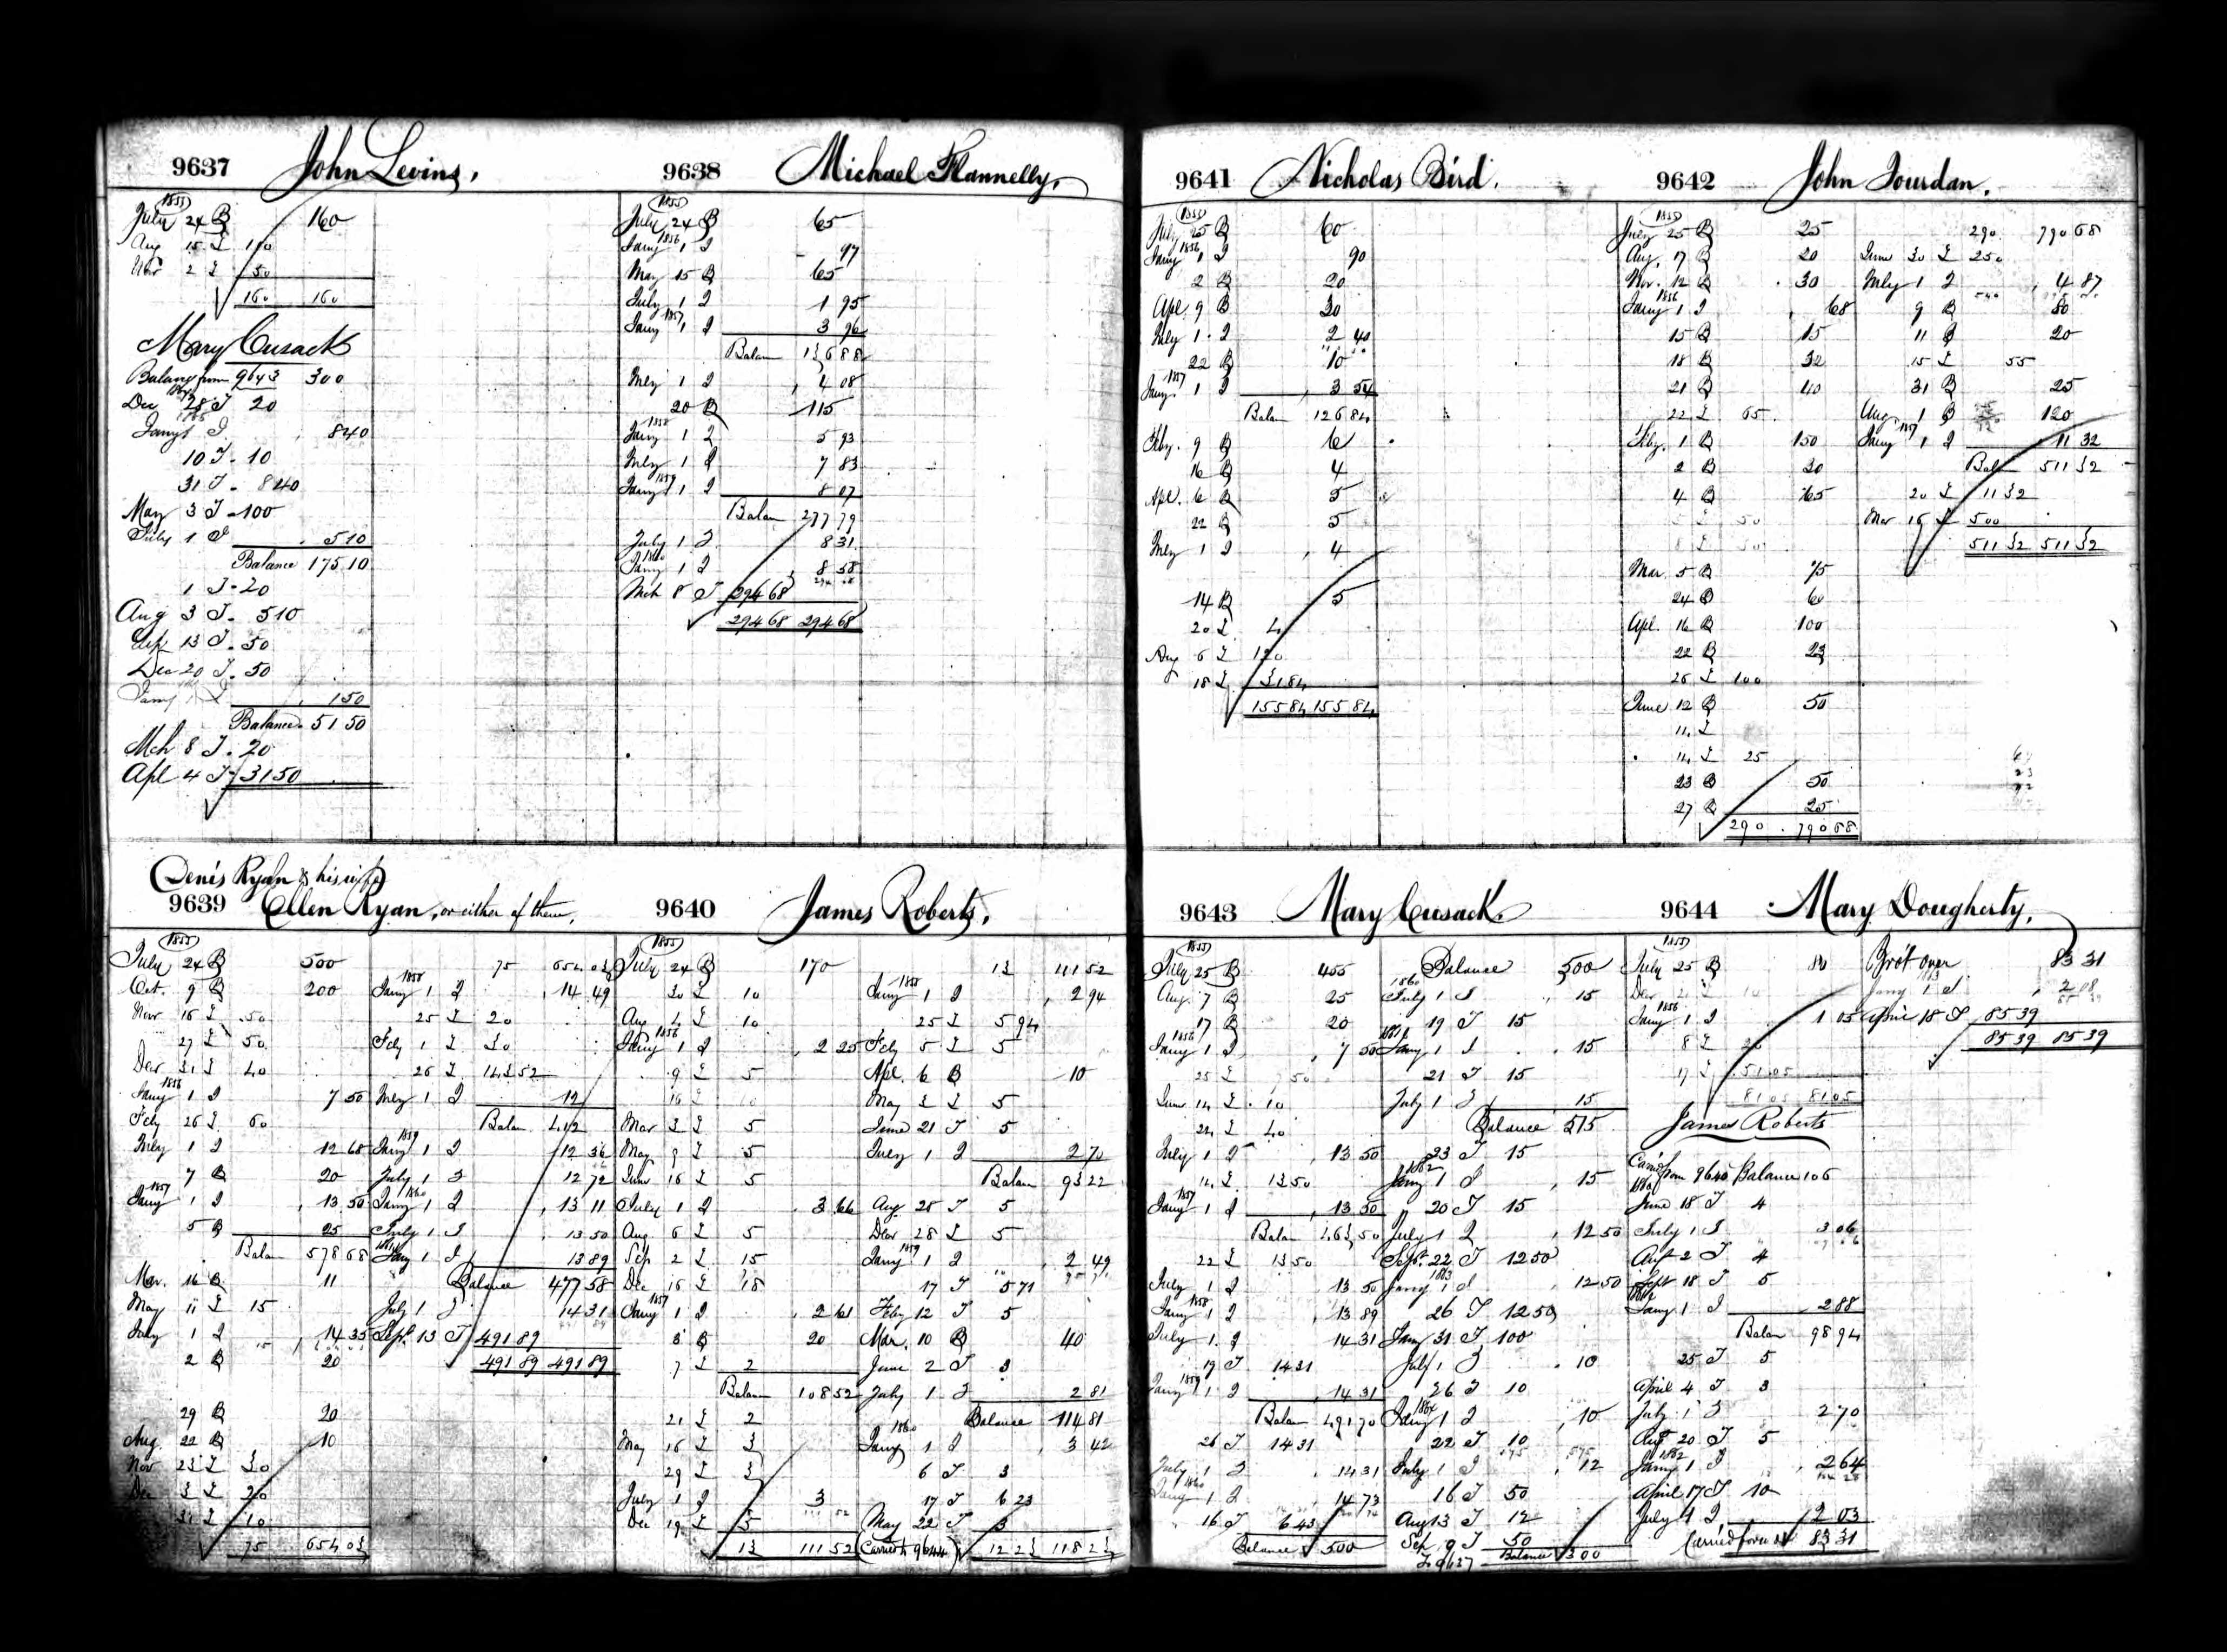 9637 John Levins.
1855
July 24 B 160
Aug 15 L 110
Nov 2 L 50
160 160
Mary Cusack
Balance from 9643 300
Dec 28 T 20
Jany 1 I 840
10 T. 10
31 T. 840
May 3 T. 100
July 1 I 510
Balance 175 10
1 T. 20
Aug 3 T. 510
Sep 13 T. 50
Dec 20 T. 50
Jany 1 I 150
Balance 51 50
Mch 8 T. 20
Apl 4 T 3150
9638 Michael Flannelly,
1855
July 24 B 65
1856
Jany 1 I 97
May 15 B 65
July 1 I 1 95
1857
Jany 1 I 3 96
Balan 136 88
July 1 I 4 08
20 B 115
1858
Jany 1 I 5 93
July 1 I 7 83
1859
Jany 1 I 8 07
Balan 277 79
July 1 I 8 31
1860
Jany 1 I 8 58
Mch 8 T 294 68
294 68 294 68
Denis Ryan & his wife
9639 Ellen Ryan, or either of them,
1855
July 24 B 500
Oct. 9 B 200
Nov 15 L 50
27 L 50
Decr 31 L 40
1856
Jany 1 I 7 50
Feby 26 L 60
July 1 I 12 68
7 B 20
1857
Jany 1 I 13 50
5 B 25
Balan 578 68
Mar. 16 B 11
May 11 L 15
July 1 I 14 35
2 B 20
29 B 20
Aug. 22 B 10
Nov 23 L 30
Dec 3 L 20
31 L 10
75 654 03
75 654 03
1858
Jany 1 I 14 49
25 L 20
Feby 1 L 30
26 L 143 52
July 1 I 12
Balan 412
1859
Jany 1 I 12 36
July 1 I 12 72
1860
Jany 1 I 13 11
July 1 I 13 50
1861
Jany 1 I 13 89
Balance 477 58
July 1 I 14 31
Sept 13 T 491 89
491 89 491 89
9640 James Roberts,
1855
July 24 B 170
30 L 10
Aug 4 L 10
1856
Jany 1 I 2 25
9 L 5
16 L 10
Mar 3 L 5
May 9 L 5
June 16 L 5
July 1 I 3 66
Aug 6 L 5
Sep 2 L 15
Dec 15 L 18
1857
Jany 1 I 2 61
5 B 20
7 L 2
Balan 108 52
21 L 2
May 16 L 3
29 L 3
July 1 I 3
Dec 19 L 5
13 111 52
13 111 52
1858
Jany 1 I 2 94
25 L 5 94
Feby 5 L 5
Apl. 6 B 10
May 3 L 5
June 21 T 5
July 1 I 2 70
Balan 93 22
Aug. 25 T 5
Decr 28 L 5
1859
Jany 1 I 2 49
17 T 5 71
Feby 12 T 5
Mar. 10 B 40
June 2 T 3
July 1 I 2 81
Balance 114 81
1860
Jany 1 I 3 42
6 T 3
17 T 6 23
May 22 T 3
(Carried to 9644) 12 23 118 23
9641 Nicholas Bird.
1855
July 25 B 60
1856
Jany 1 I 90
2 B 20
Apl. 9 B 30
July 1 I 2 40
22 B 10
1857
Jany. 1 I 3 54
Balan 126 84
Feby. 9 B 6
16 B 4
Apl. 6 B 5
22 B 5
July 1 I 4
14 B 5
20 L 4
Aug 6 L 120
18 L 31 84
155 84 155 84
9642 John Jourdan.
1855
July 25 B 25
Aug. 17 B 20
Nov. 12 B 30
1856
Jany 1 I 68
15 B 15
18 B 32
21 B 40
22 L 65
Feby. 1 B 150
2 B 30
4 B 65
5 L 50
8 L 50
Mar. 5 B 75
24 B 60
Apl. 16 B 100
22 B 23
26 L 100
June 12 B 50
11 L
14 L 25
23 B 50
27 B 25
290 790 68
290 790 68
June 30 L 250
July 1 I 4 87
9 B 80
11 B 20
15 L 55
31 B 25
Aug 1 B 120
1857
Jany 1 I 11 32
Bal 511 32
20 L 11 32
Mar 16 L 500
511 32 511 32
9643 Mary Cusack.
1855
July 25 B 455
Aug. 7 B 25
17 B 20
1856
Jany 1 I 7 50
25 L 7 50
June 14 L 10
24 L 40
July 1 I 13 50
14 L 13 50
1857
Jany 1 I 13 50
Balan 463 50
22 L 13 50
July 1 I 13 50
1858
Jany 1 I 13 89
July 1 I 14 31
19 T 14 31
1859
Jany 1 I 14 31
Balan 491 70
26 T 14 31
July 1 I 14 31
1860
Jany 1 I 14 73
16 T 6 43
Balance 500
Balance 500
1860
July 1 I 15
19 T 15
1861
Jany 1 I 15
21 T 15
July 1 I 15
Balance 515
23 T 15
1862
Jany 1 I 15
20 T 15
July 1 I 12 50
Sept. 22 T 12 50
1863
Jany 1 I 12 50
26 T 12 50
Jany 31 T 100
July 1 I 10
26 T 10
1864
Jany 1 I 10
22 T 10
July 1 I 12
16 T 50
Aug 13 T 12
Sep 9 T 50
To 9637 Balance 300
9644 Mary Dougherty,
1855
July 25 B 80
1856
Jany 1 I 1 05
8 L
17 L 51 05
81 05 81 05
James Roberts
Carried from 9640 Balance 106
1860
June 18 T 4
July 1 I 3 06
Aug 2 T 4
Sept 18 T 5
1861
Jany 1 I 2 88
Balan 98 94
25 T 5
April 4 T 3
July 1 I 2 70
Augt 20 T 5
1862
Jany 1 I 2 64
April 17 T 10
July 1 I 2 03
Carried forward 83 31
Brot over 83 31
1863
Jany 1 I 2 08
April 18 T 85 39
85 39 85 39